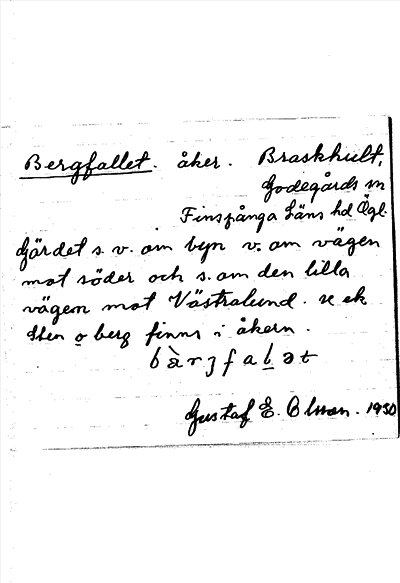 Bergfallet. åker. Braskhult,
Godegårds sn
Finspånga Läns hd Ögl.
Gärdet s. v. om byn v. om vägen
mot söder och s. om den lilla
vägen mot Västralund. se ek
Sten o berg finns i åkern.
bàrʒfaḻət
Gustaf E. Olsson. 1930